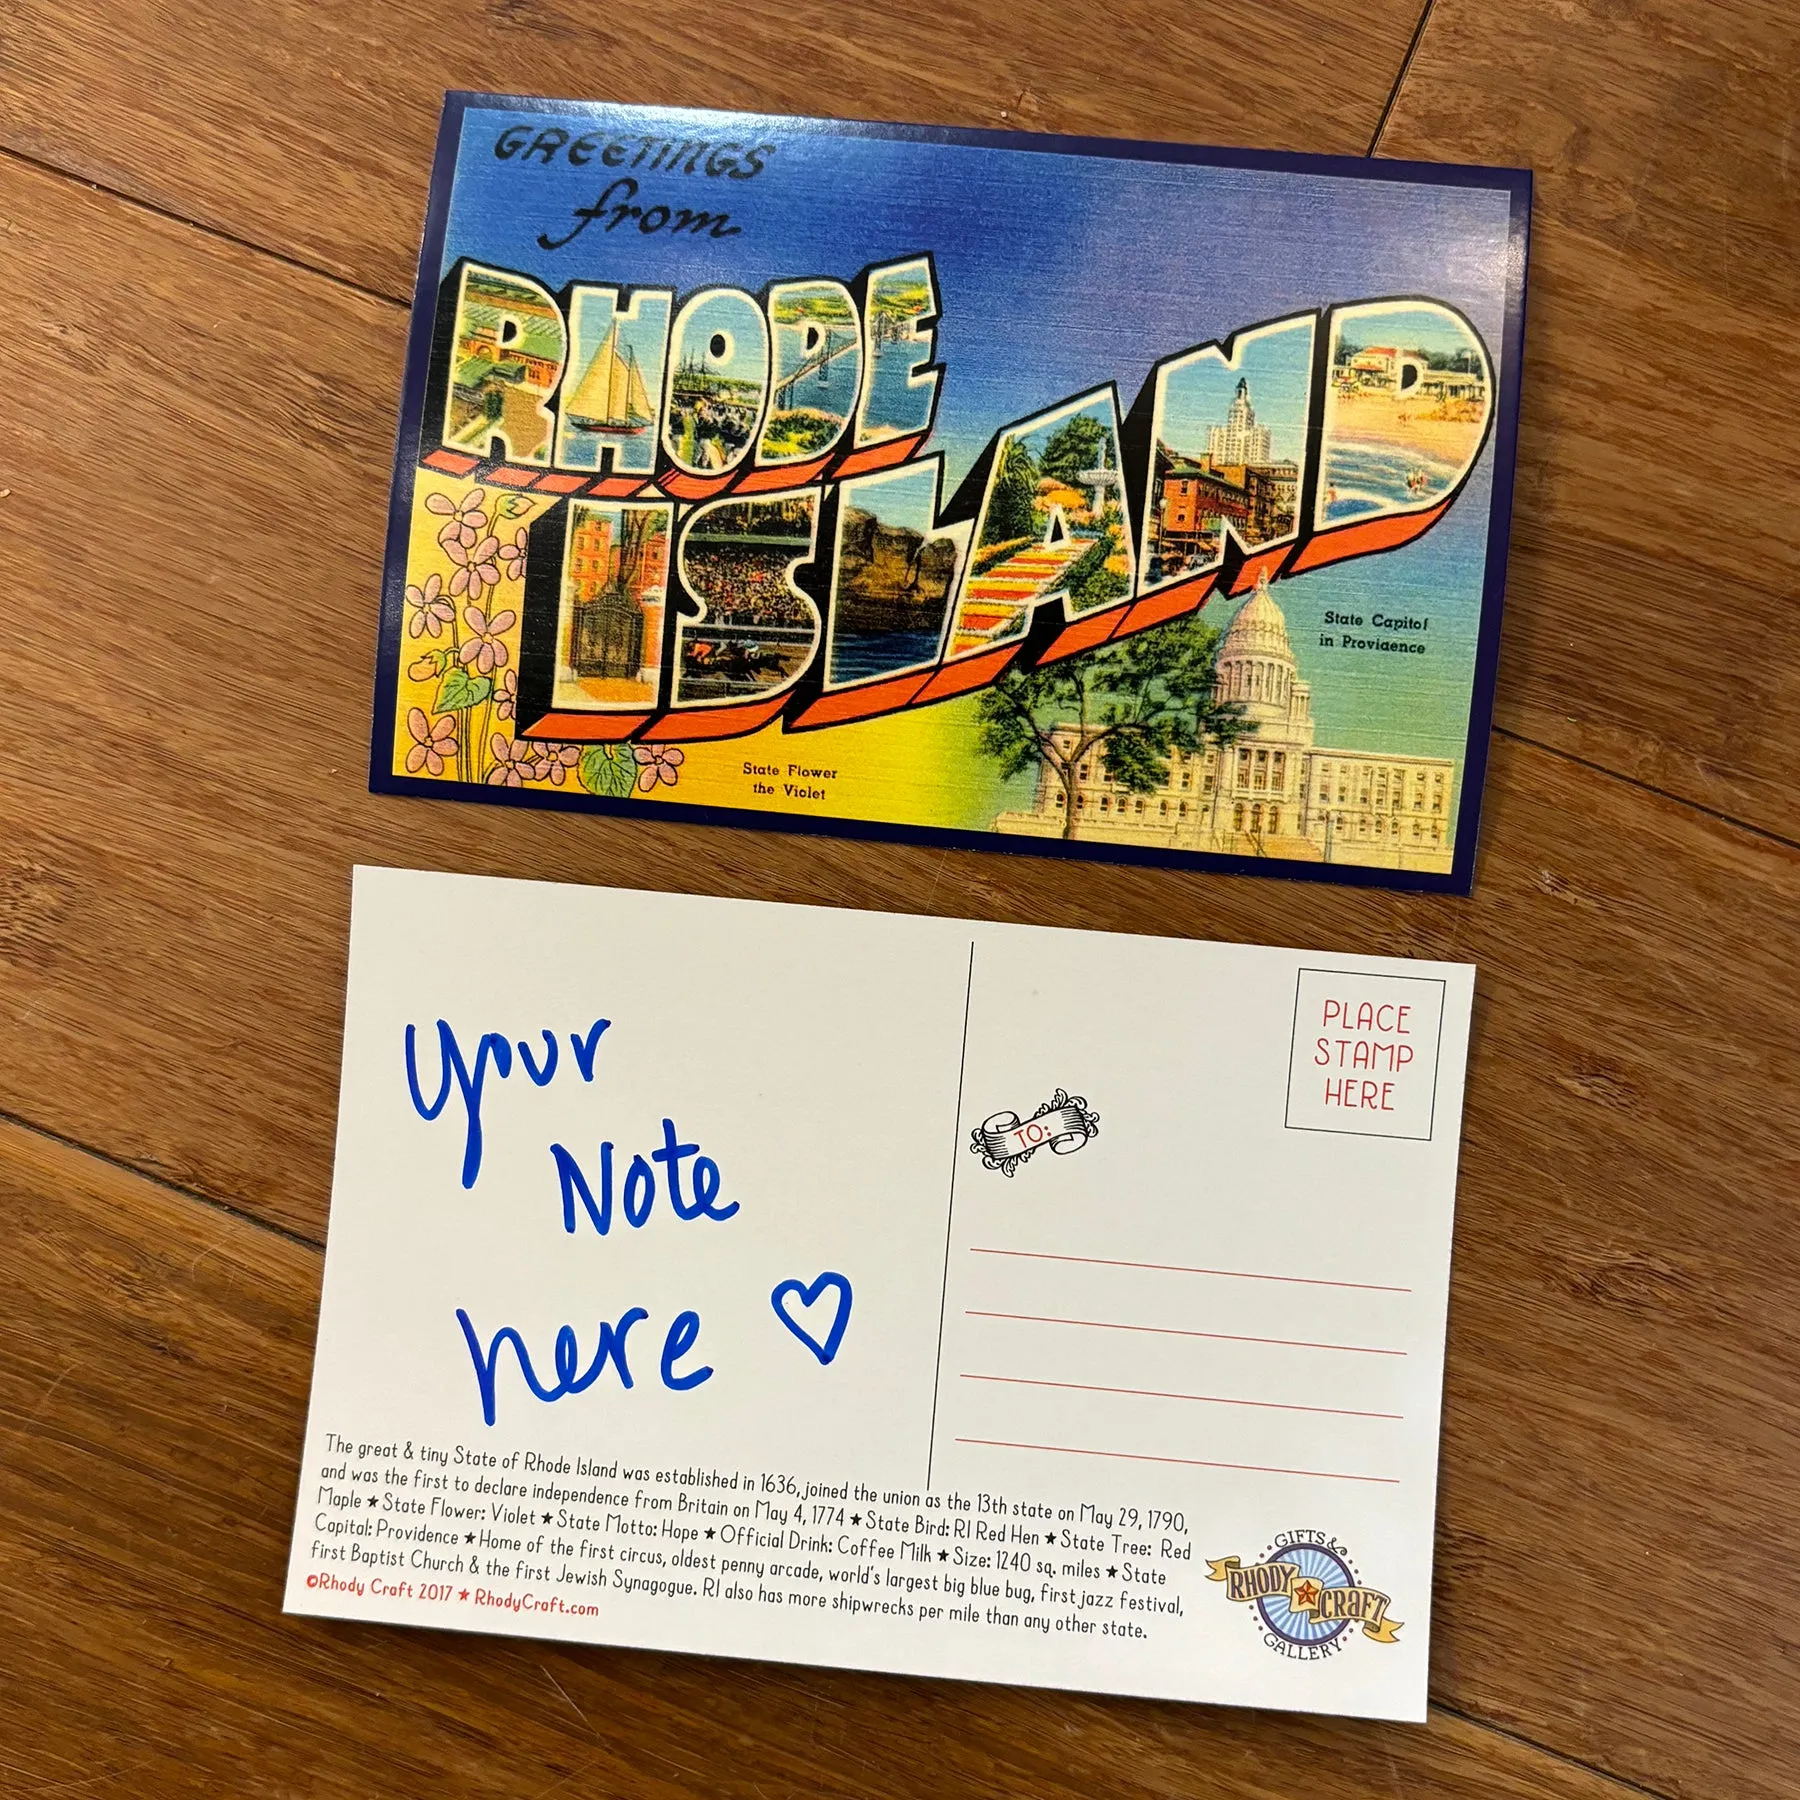 GREETINGS
from
RHODE
ISLAND
State Capitol
in Providence
State Flower
the Violet
your
Note
here
PLACE
STAMP
HERE
TO:
The great & tiny State of Rhode Island was established in 1636, joined the union as the 13th state on May 29, 1790,
and was the first to declare independence from Britain on May 4, 1774 ★ State Bird: RI Red Hen ★ State Tree: Red
Maple ★ State Flower: Violet ★ State Motto: Hope ★ Official Drink: Coffee Milk ★ Size: 1240 sq. miles ★ State
Capital: Providence ★ Home of the first circus, oldest penny arcade, world's largest big blue bug, first jazz festival,
first Baptist Church & the first Jewish Synagogue. RI also has more shipwrecks per mile than any other state.
©Rhody Craft 2017 ★ RhodyCraft.com
GIFTS &
RHODY CRAFT
GALLERY